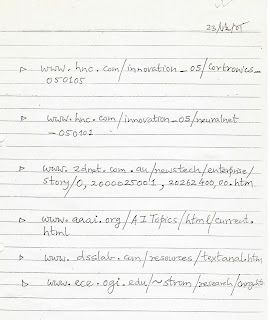 23/12/05
▷ www.hnc.com/innovation_05/cortronics_
050105
▷ www.hnc.com/innovation_05/neuralnet
_050102
▷ www.zdnet.com.au/newstech/enterprise/
story/0,2000025001,20262400,00.htm
▷ www.aaai.org/AITopics/html/current.
html
▷ www.dsslab.com/resources/textanal.htm
▷ www.ece.ogi.edu/~strom/research/